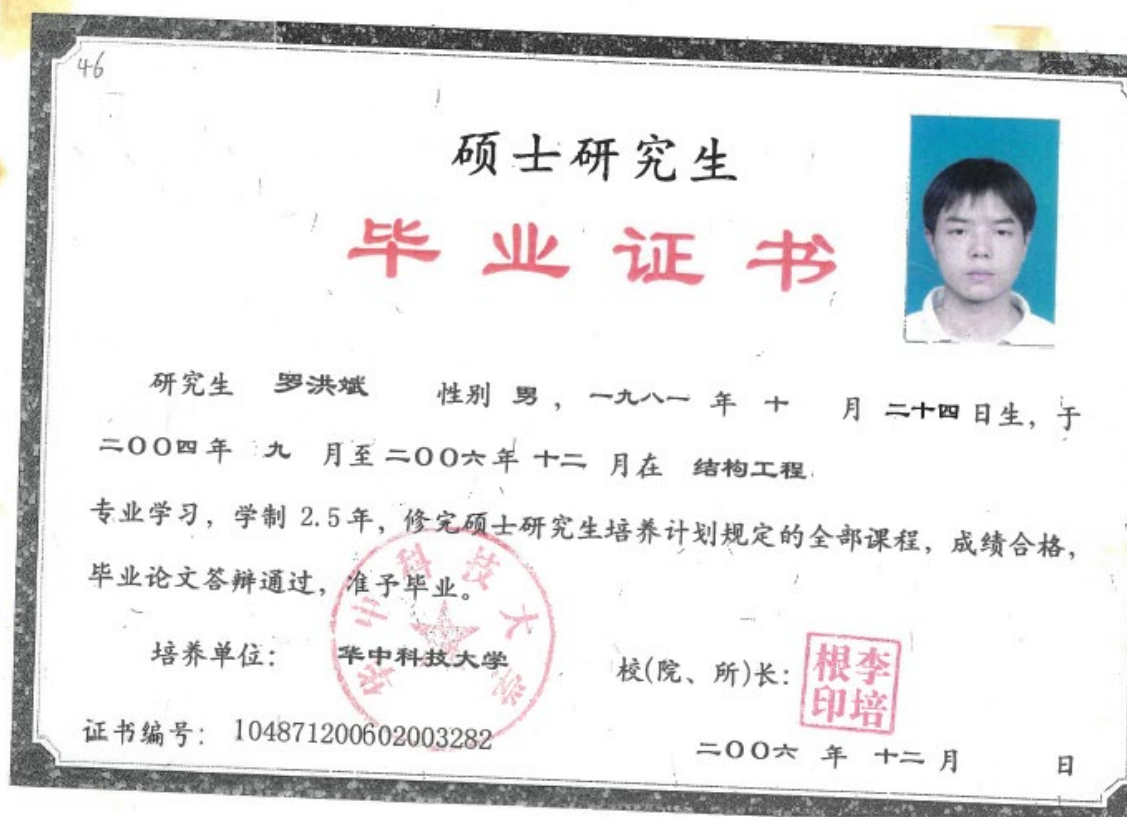 46
硕士研究生
毕业证书
研究生 罗洪斌 性别 男 ， 一九八一 年 十 月 二十四 日生，于
二〇〇四 年 九 月至 二〇〇六 年 十二 月在 结构工程
专业学习，学制 2.5 年，修完硕士研究生培养计划规定的全部课程，成绩合格，
毕业论文答辩通过，准予毕业。
华中科技大学
培养单位： 华中科技大学
校(院、所)长： 李培根印
证书编号： 104871200602003282
二〇〇六 年 十二 月 日